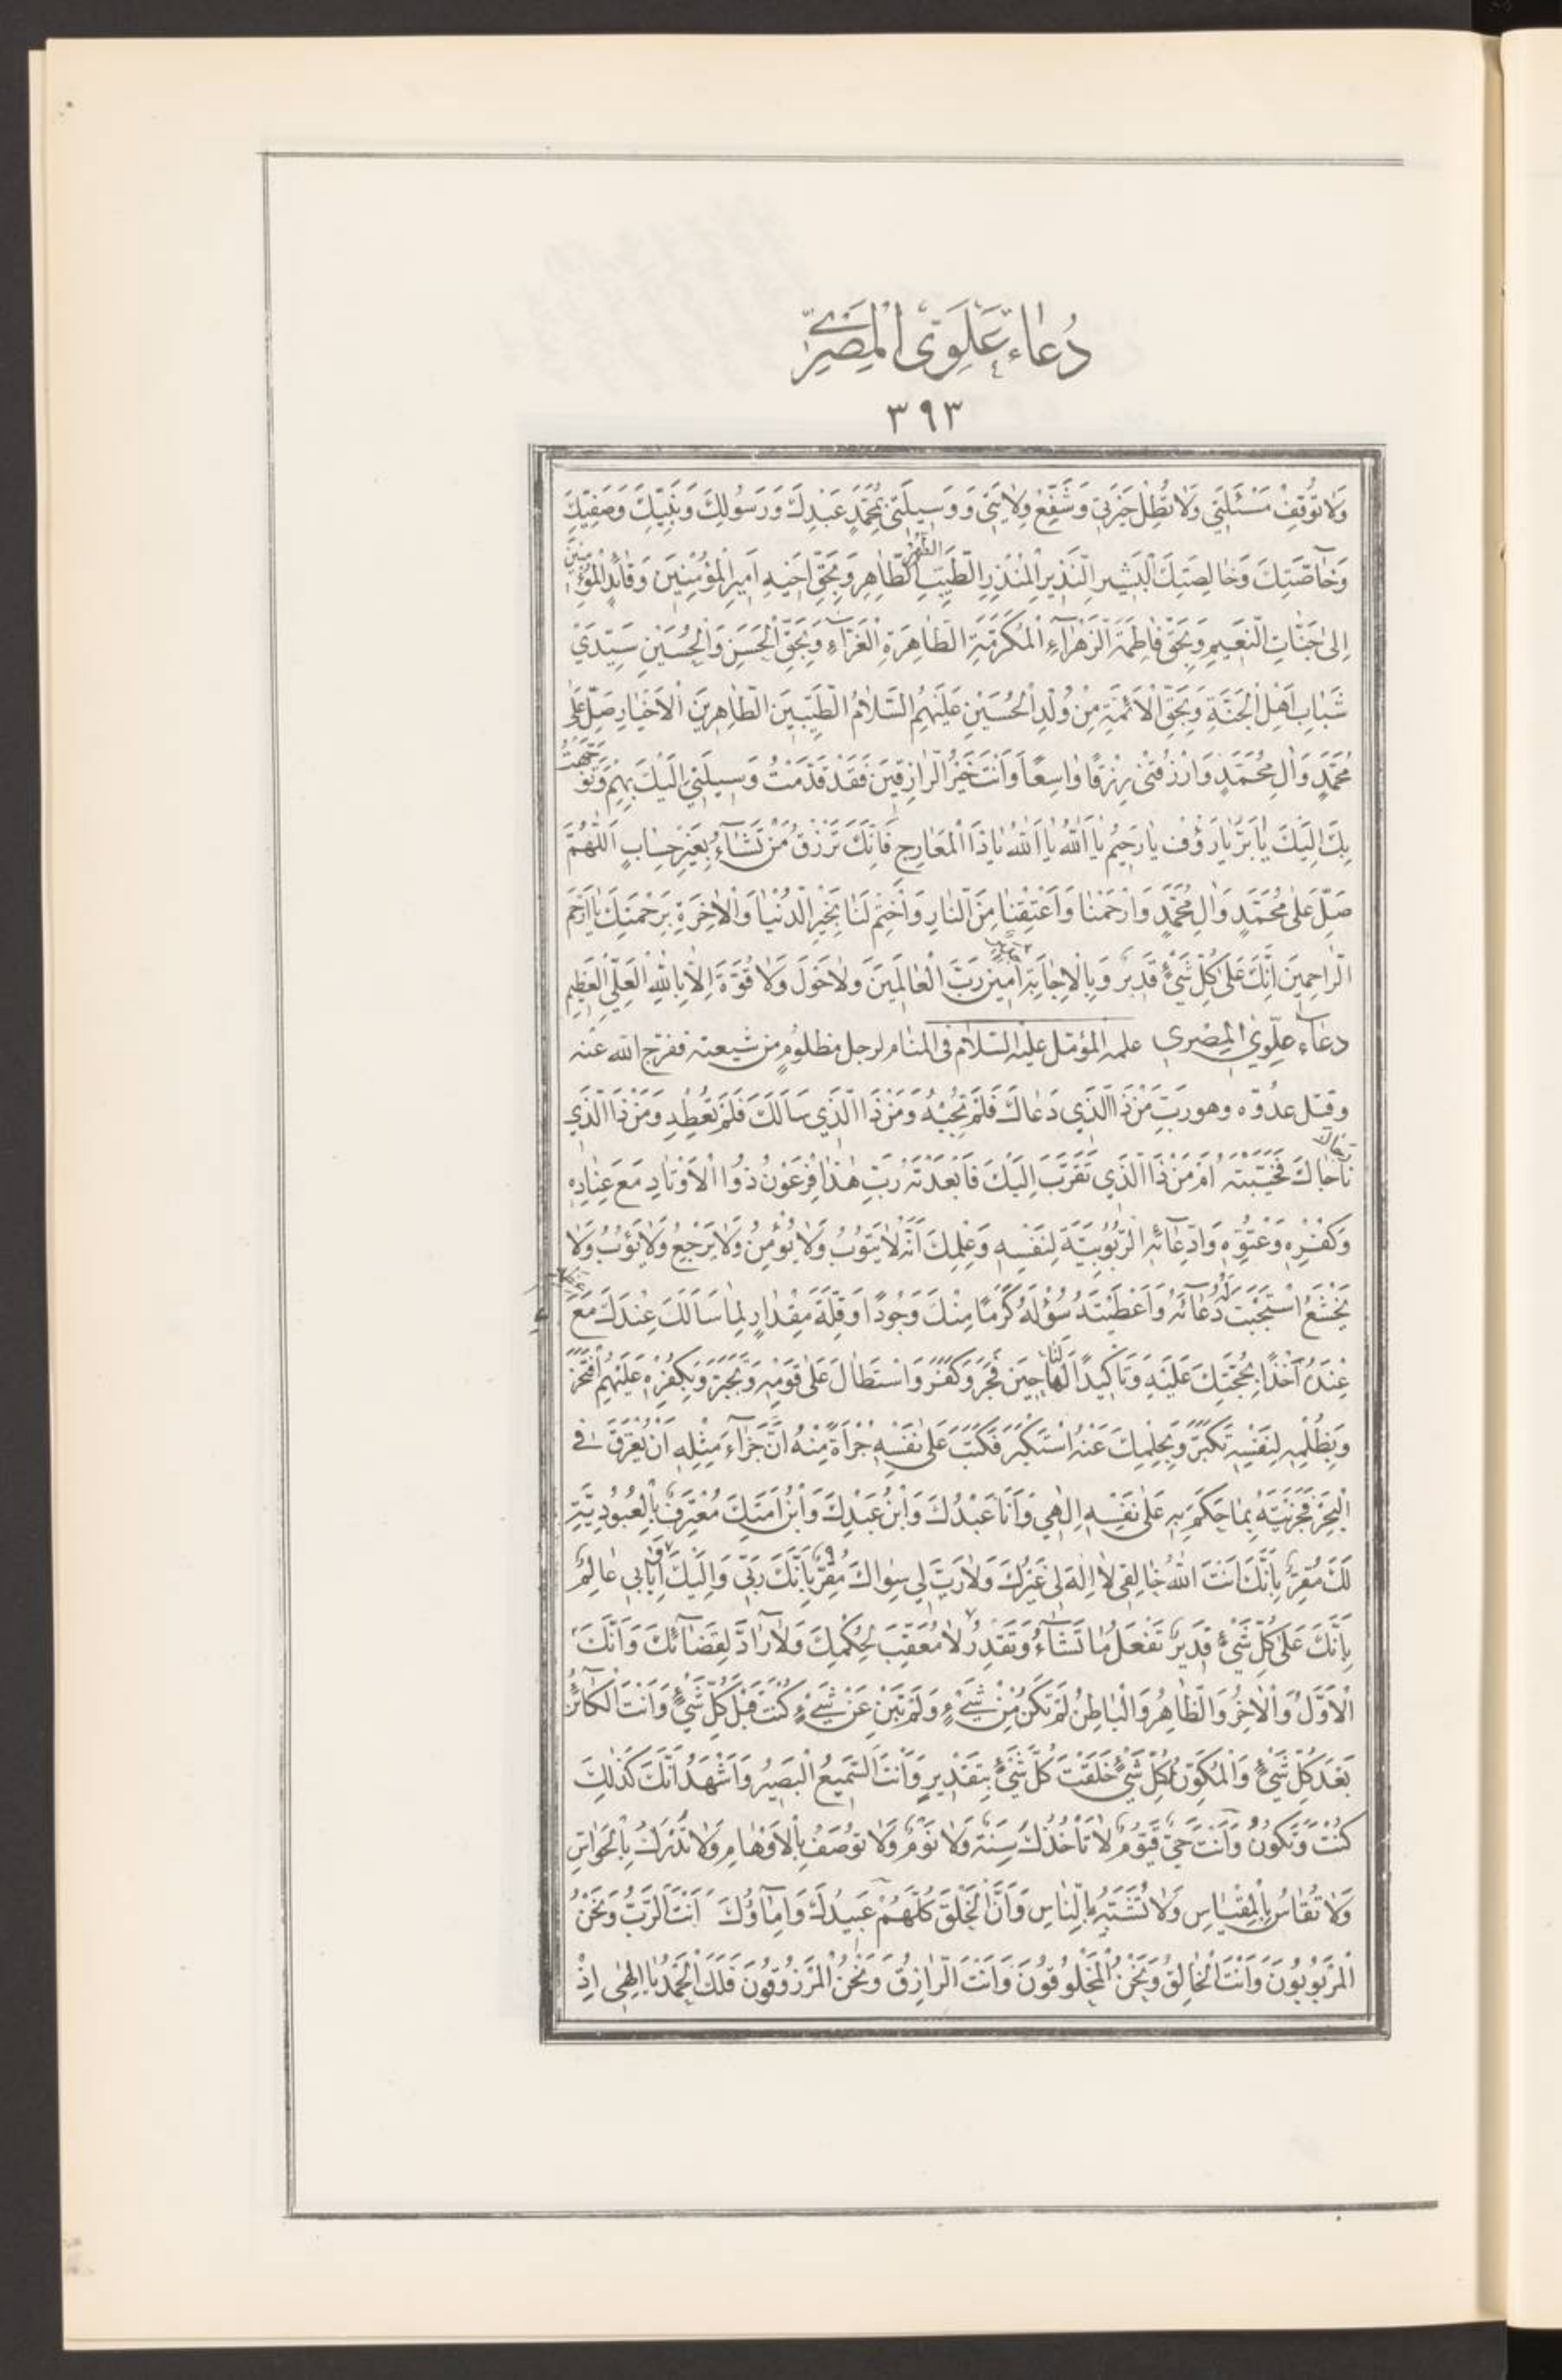 دُعَاءِ عَلَوِىِّ الْمِصْرِىِّ
٣٩٣
وَلَا تُوقِفْ مَسْئَلَتِي وَلَا تُطِلْ حَيْرَتِي وَشَفِّعْ وِلَايَتِي وَوَسِيلَتِي بِمُحَمَّدٍ عَبْدِكَ وَرَسُولِكَ وَنَبِيِّكَ وَصَفِيِّكَ
وَخَاصَّتِكَ وَخَالِصَتِكَ الْبَشِيرِ النَّذِيرِ الْمُنْذِرِ الطَّيِّبِ الطَّاهِرِ وَبِحَقِّ اَخِيهِ اَمِيرِ الْمُؤْمِنِينَ وَقَائِدِ الْمُؤْمِنِينَ
اِلَى جَنَّاتِ النَّعِيمِ وَبِحَقِّ فَاطِمَةَ الزَّهْرَاءِ الْمُكَرَّمَةِ الطَّاهِرَةِ الْغَرَّاءِ وَبِحَقِّ الْحَسَنِ وَالْحُسَيْنِ سَيِّدَيْ
شَبَابِ اَهْلِ الْجَنَّةِ وَبِحَقِّ الْاَئِمَّةِ مِنْ وُلْدِ الْحُسَيْنِ عَلَيْهِمُ السَّلَامُ الطَّيِّبِينَ الطَّاهِرِينَ الْاَخْيَارِ صَلِّ عَلَى
مُحَمَّدٍ وَالِ مُحَمَّدٍ وَارْزُقْنِي رِزْقًا وَاسِعًا وَاَنْتَ خَيْرُ الرَّازِقِينَ فَقَدْ قَدَّمْتُ وَسِيلَتِي اِلَيْكَ بِهِمْ وَتَوَجَّهْتُ
بِكَ اِلَيْكَ يَا بَرُّ يَا رَؤُفُ يَا رَحِيمُ يَا اَللهُ يَا اَللهُ يَا ذَا الْمَعَارِجِ فَاِنَّكَ تَرْزُقُ مَنْ تَشَاءُ بِغَيْرِ حِسَابٍ اَللّٰهُمَّ
صَلِّ عَلَى مُحَمَّدٍ وَالِ مُحَمَّدٍ وَارْحَمْنَا وَاَعْتِقْنَا مِنَ النَّارِ وَاخْتِمْ لَنَا بِخَيْرِ الدُّنْيَا وَالْاخِرَةِ بِرَحْمَتِكَ يَا اَرْحَمَ
الرَّاحِمِينَ اِنَّكَ عَلَى كُلِّ شَيْءٍ قَدِيرٌ وَبِالْاِجَابَةِ امِينَ رَبَّ الْعَالَمِينَ وَلَا حَوْلَ وَلَا قُوَّةَ اِلَّا بِاللهِ الْعَلِيِّ الْعَظِيمِ
دعاء عَلَوِيّ المِصْرِي علمه المؤمل عليه السلام فى المنام لرجل مظلومٍ من شيعته ففرج الله عنه
وقتل عدُوّه وهو رَبِّ مَنْ ذَا الَّذِي دَعَاكَ فَلَمْ تُجِبْهُ وَمَنْ ذَا الَّذِي سَاَلَكَ فَلَمْ تُعْطِهِ وَمَنْ ذَا الَّذِي
نَاجَاكَ فَخَيَّبْتَهُ اَمْ مَنْ ذَا الَّذِي تَقَرَّبَ اِلَيْكَ فَاَبْعَدْتَهُ رَبِّ هٰذَا فِرْعَوْنُ ذُو الْاَوْتَادِ مَعَ عِنَادِهِ
وَكُفْرِهِ وَعُتُوِّهِ وَادِّعَائِهِ الرُّبُوبِيَّةَ لِنَفْسِهِ وَعِلْمِكَ اَنَّهُ لَا يَتُوبُ وَلَا يُؤْمِنُ وَلَا يَرْجِعُ وَلَا يَؤُبُ وَلَا
يَخْشَعُ اسْتَجَبْتَ لَهُ دُعَائَهُ وَاَعْطَيْتَهُ سُؤْلَهُ كَرَمًا مِنْكَ وَجُودًا وَقِلَّةَ مِقْدَارٍ لِمَا سَاَلَكَ عِنْدَكَ مَعَ عِظَمِهِ
عِنْدَهُ اَخْذًا بِحُجَّتِكَ عَلَيْهِ وَتَاْكِيدًا لَهَا حِينَ فَجَرَ وَكَفَرَ وَاسْتَطَالَ عَلَى قَوْمِهِ وَتَجَبَّرَ وَبِكُفْرِهِ عَلَيْهِمُ افْتَخَرَ
وَبِظُلْمِهِ لِنَفْسِهِ تَكَبَّرَ وَبِحِلْمِكَ عَنْهُ اسْتَكْبَرَ فَكَتَبَ عَلَى نَفْسِهِ جُرْاَةً مِنْهُ اَنَّ جَزَاءَ مِثْلِهِ اَنْ يُغْرَقَ فِي
الْبَحْرِ فَجَزَيْتَهُ بِمَا حَكَمَ بِهِ عَلَى نَفْسِهِ اِلٰهِي وَاَنَا عَبْدُكَ وَابْنُ عَبْدِكَ وَابْنُ اَمَتِكَ مُعْتَرِفٌ بِالْعُبُودِيَّةِ
لَكَ مُقِرٌّ بِاَنَّكَ اَنْتَ اللهُ خَالِقِي لَا اِلٰهَ لِي غَيْرُكَ وَلَا رَبَّ لِي سِوَاكَ مُقِرٌّ بِاَنَّكَ رَبِّي وَاِلَيْكَ اِيَابِي عَالِمٌ
بِاَنَّكَ عَلَى كُلِّ شَيْءٍ قَدِيرٌ تَفْعَلُ مَا تَشَاءُ وَتَقْدِرُ لَا مُعَقِّبَ لِحُكْمِكَ وَلَا رَادَّ لِقَضَائِكَ وَاَنَّكَ
الْاَوَّلُ وَالْاخِرُ وَالظَّاهِرُ وَالْبَاطِنُ لَمْ تَكُنْ مِنْ شَيْءٍ وَلَمْ تَبِنْ عَنْ شَيْءٍ كُنْتَ قَبْلَ كُلِّ شَيْءٍ وَاَنْتَ الْكَائِنُ
بَعْدَ كُلِّ شَيْءٍ وَالْمُكَوِّنُ لِكُلِّ شَيْءٍ خَلَقْتَ كُلَّ شَيْءٍ بِتَقْدِيرٍ وَاَنْتَ السَّمِيعُ الْبَصِيرُ وَاَشْهَدُ اَنَّكَ كَذٰلِكَ
كُنْتَ وَتَكُونُ وَاَنْتَ حَيٌّ قَيُّومٌ لَا تَاْخُذُكَ سِنَةٌ وَلَا نَوْمٌ وَلَا تُوصَفُ بِالْاَوْهَامِ وَلَا تُدْرَكُ بِالْحَوَاسِّ
وَلَا تُقَاسُ بِالْمِقْيَاسِ وَلَا تُشَبَّهُ بِالنَّاسِ وَاَنَّ الْخَلْقَ كُلَّهُمْ عَبِيدُكَ وَاِمَاؤُكَ اَنْتَ الرَّبُّ وَنَحْنُ
الْمَرْبُوبُونَ وَاَنْتَ الْخَالِقُ وَنَحْنُ الْمَخْلُوقُونَ وَاَنْتَ الرَّازِقُ وَنَحْنُ الْمَرْزُوقُونَ فَلَكَ الْحَمْدُ يَا اِلٰهِي اِذْ